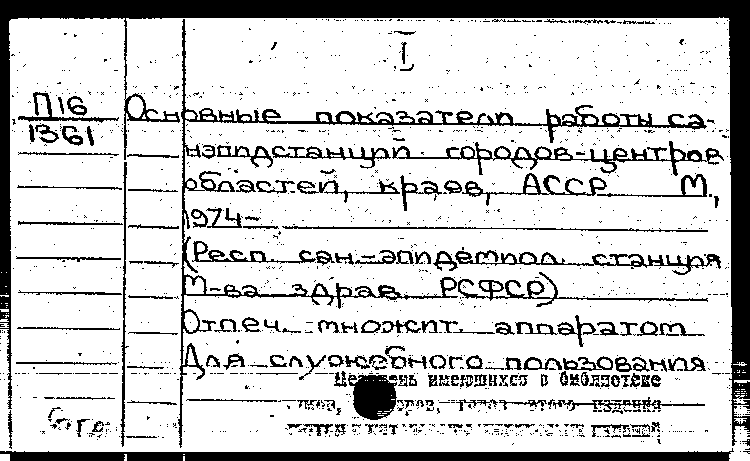 I
П16
1361
Основные показатели работы са-
нэпидстанций городов-центров
областей, краев, АССР М.,
1974-
(Респ. сан-эпидемиол. станция
М-ва здрав. РСФСР)
Отпеч. множит. аппаратом
Для служебного пользования
имеющихся в библиотеке
этого издания